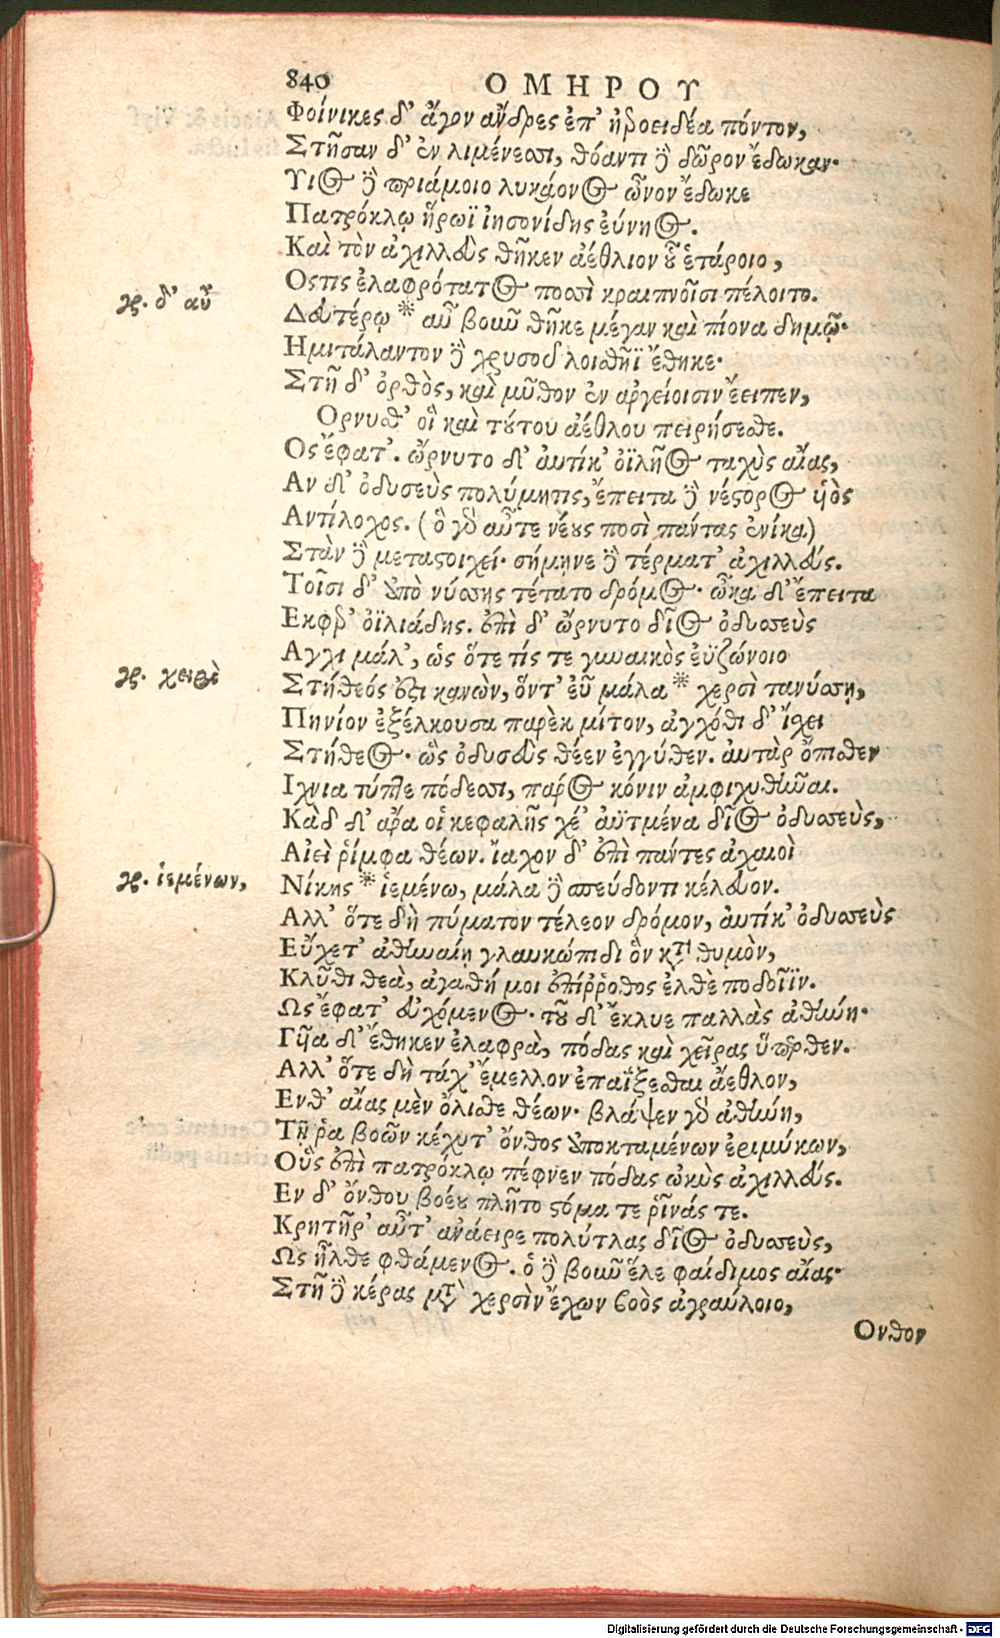 840 ΟΜΗΡΟΥ
Φοίνικες δ' ἄγον ἄνδρες ἐπ' ἠεροειδέα πόντον,
Στῆσαν δ' ἐν λιμένεσσι, θόαντι δὲ δῶρον ἔδωκαν·
Υἷος δὲ πριάμοιο λυκάονος ὦνον ἔδωκε
Πατρόκλῳ ἥρωϊ ἰησονίδης εὔνηος.
Καὶ τὸν ἀχιλλεὺς θῆκεν ἀέθλιον οὗ ἑτάροιο,
Οςτις ἐλαφρότατος ποσσὶ κραιπνοῖσι πέλοιτο.
γρ. δ' αὖ
Δευτέρῳ * αὖ βοῦν θῆκε μέγαν καὶ πίονα δημῷ·
Ημιτάλαντον δὲ χρυσοῦ λοισθῆϊ ἔθηκε·
Στῆ δ' ὀρθὸς, καὶ μῦθον ἐν ἀργείοισιν ἔειπεν,
Ορνυσθ' οἳ καὶ τούτου ἀέθλου πειρήσεσθε.
Ος ἔφατ'. ὤρνυτο δ' αὐτίκ' ὀϊλῆος ταχὺς αἴας,
Αν δ' ὀδυσεὺς πολύμητις, ἔπειτα δὲ νέστορος υἱὸς
Αντίλοχος. (ὃ γὰρ αὖτε νέους ποσὶ πάντας ἐνίκα)
Στὰν δὲ μεταστοιχεί· σήμηνε δὲ τέρματ' ἀχιλλεύς.
Τοῖσι δ' ἀπὸ νύσσης τέτατο δρόμος· ὦκα δ' ἔπειτα
Εκφερ' ὀϊλιάδης. ἐπὶ δ' ὤρνυτο δῖος ὀδυσσεὺς
Αγχι μάλ', ὡς ὅτε τίς τε γυναικὸς ἐϋζώνοιο
γρ. χειρὶ
Στήθεός ἐστι κανὼν, ὅντ' εὖ μάλα * χερσὶ τανύσσῃ,
Πηνίον ἐξέλκουσα παρὲκ μίτον, ἀγχόθι δ' ἴχει
Στήθεος· ὣς ὀδυσεὺς θέεν ἐγγύθεν. αὐτὰρ ὄπισθεν
Ιχνια τύπτε πόδεσσι, πάρος κόνιν ἀμφιχυθῆναι.
Κὰδ δ' ἄρα οἱ κεφαλῆς χέ' ἀϋτμένα δῖος ὀδυσσεὺς,
Αἰεὶ ῥίμφα θέων. ἴαχον δ' ἐπὶ πάντες ἀχαιοὶ
γρ. ἱεμένων,
Νίκης * ἱεμένω, μάλα δὲ σπεύδοντι κέλευον.
Αλλ' ὅτε δὴ πύματον τέλεον δρόμον, αὐτίκ' ὀδυσσεὺς
Εὔχετ' ἀθηναίῃ γλαυκώπιδι ὃν κατὰ θυμὸν,
Κλῦθι θεὰ, ἀγαθή μοι ἐπίῤῥοθος ἐλθὲ ποδοῖϊν.
Ως ἔφατ' εὐχόμενος· τοῦ δ' ἔκλυε παλλὰς ἀθήνη·
Γῆα δ' ἔθηκεν ἐλαφρὰ, πόδας καὶ χεῖρας ὕπερθεν.
Αλλ' ὅτε δὴ τάχ' ἔμελλον ἐπαΐξεσθαι ἄεθλον,
Ενθ' αἴας μὲν ὄλισθε θέων· βλάψεν γὰρ ἀθήνη,
Τῇ ῥα βοῶν κέχυτ' ὄνθος ἀποκταμένων ἐριμύκων,
Οὓς ἐπὶ πατρόκλῳ πέφνεν πόδας ὠκὺς ἀχιλλεύς.
Εν δ' ὄνθου βοέου πλῆτο στόμα τε ῥῖνάς τε.
Κρητῆρ' αὖτ' ἀνάειρε πολύτλας δῖος ὀδυσσεὺς,
Ως ἦλθε φθάμενος. ὁ δὲ βοῦν ἕλε φαίδιμος αἴας·
Στῆ δὲ κέρας μετὰ χερσὶν ἔχων βοὸς ἀγραύλοιο,
Ονθον
Digitalisierung gefördert durch die Deutsche Forschungsgemeinschaft - DFG